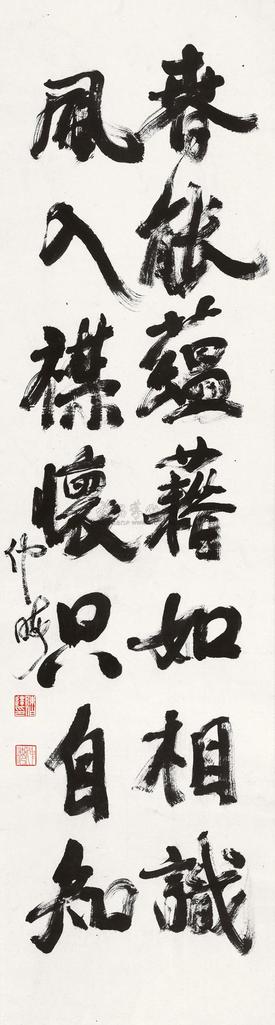 春能蕴藉如相識
風入襟懷只自知
仲晦